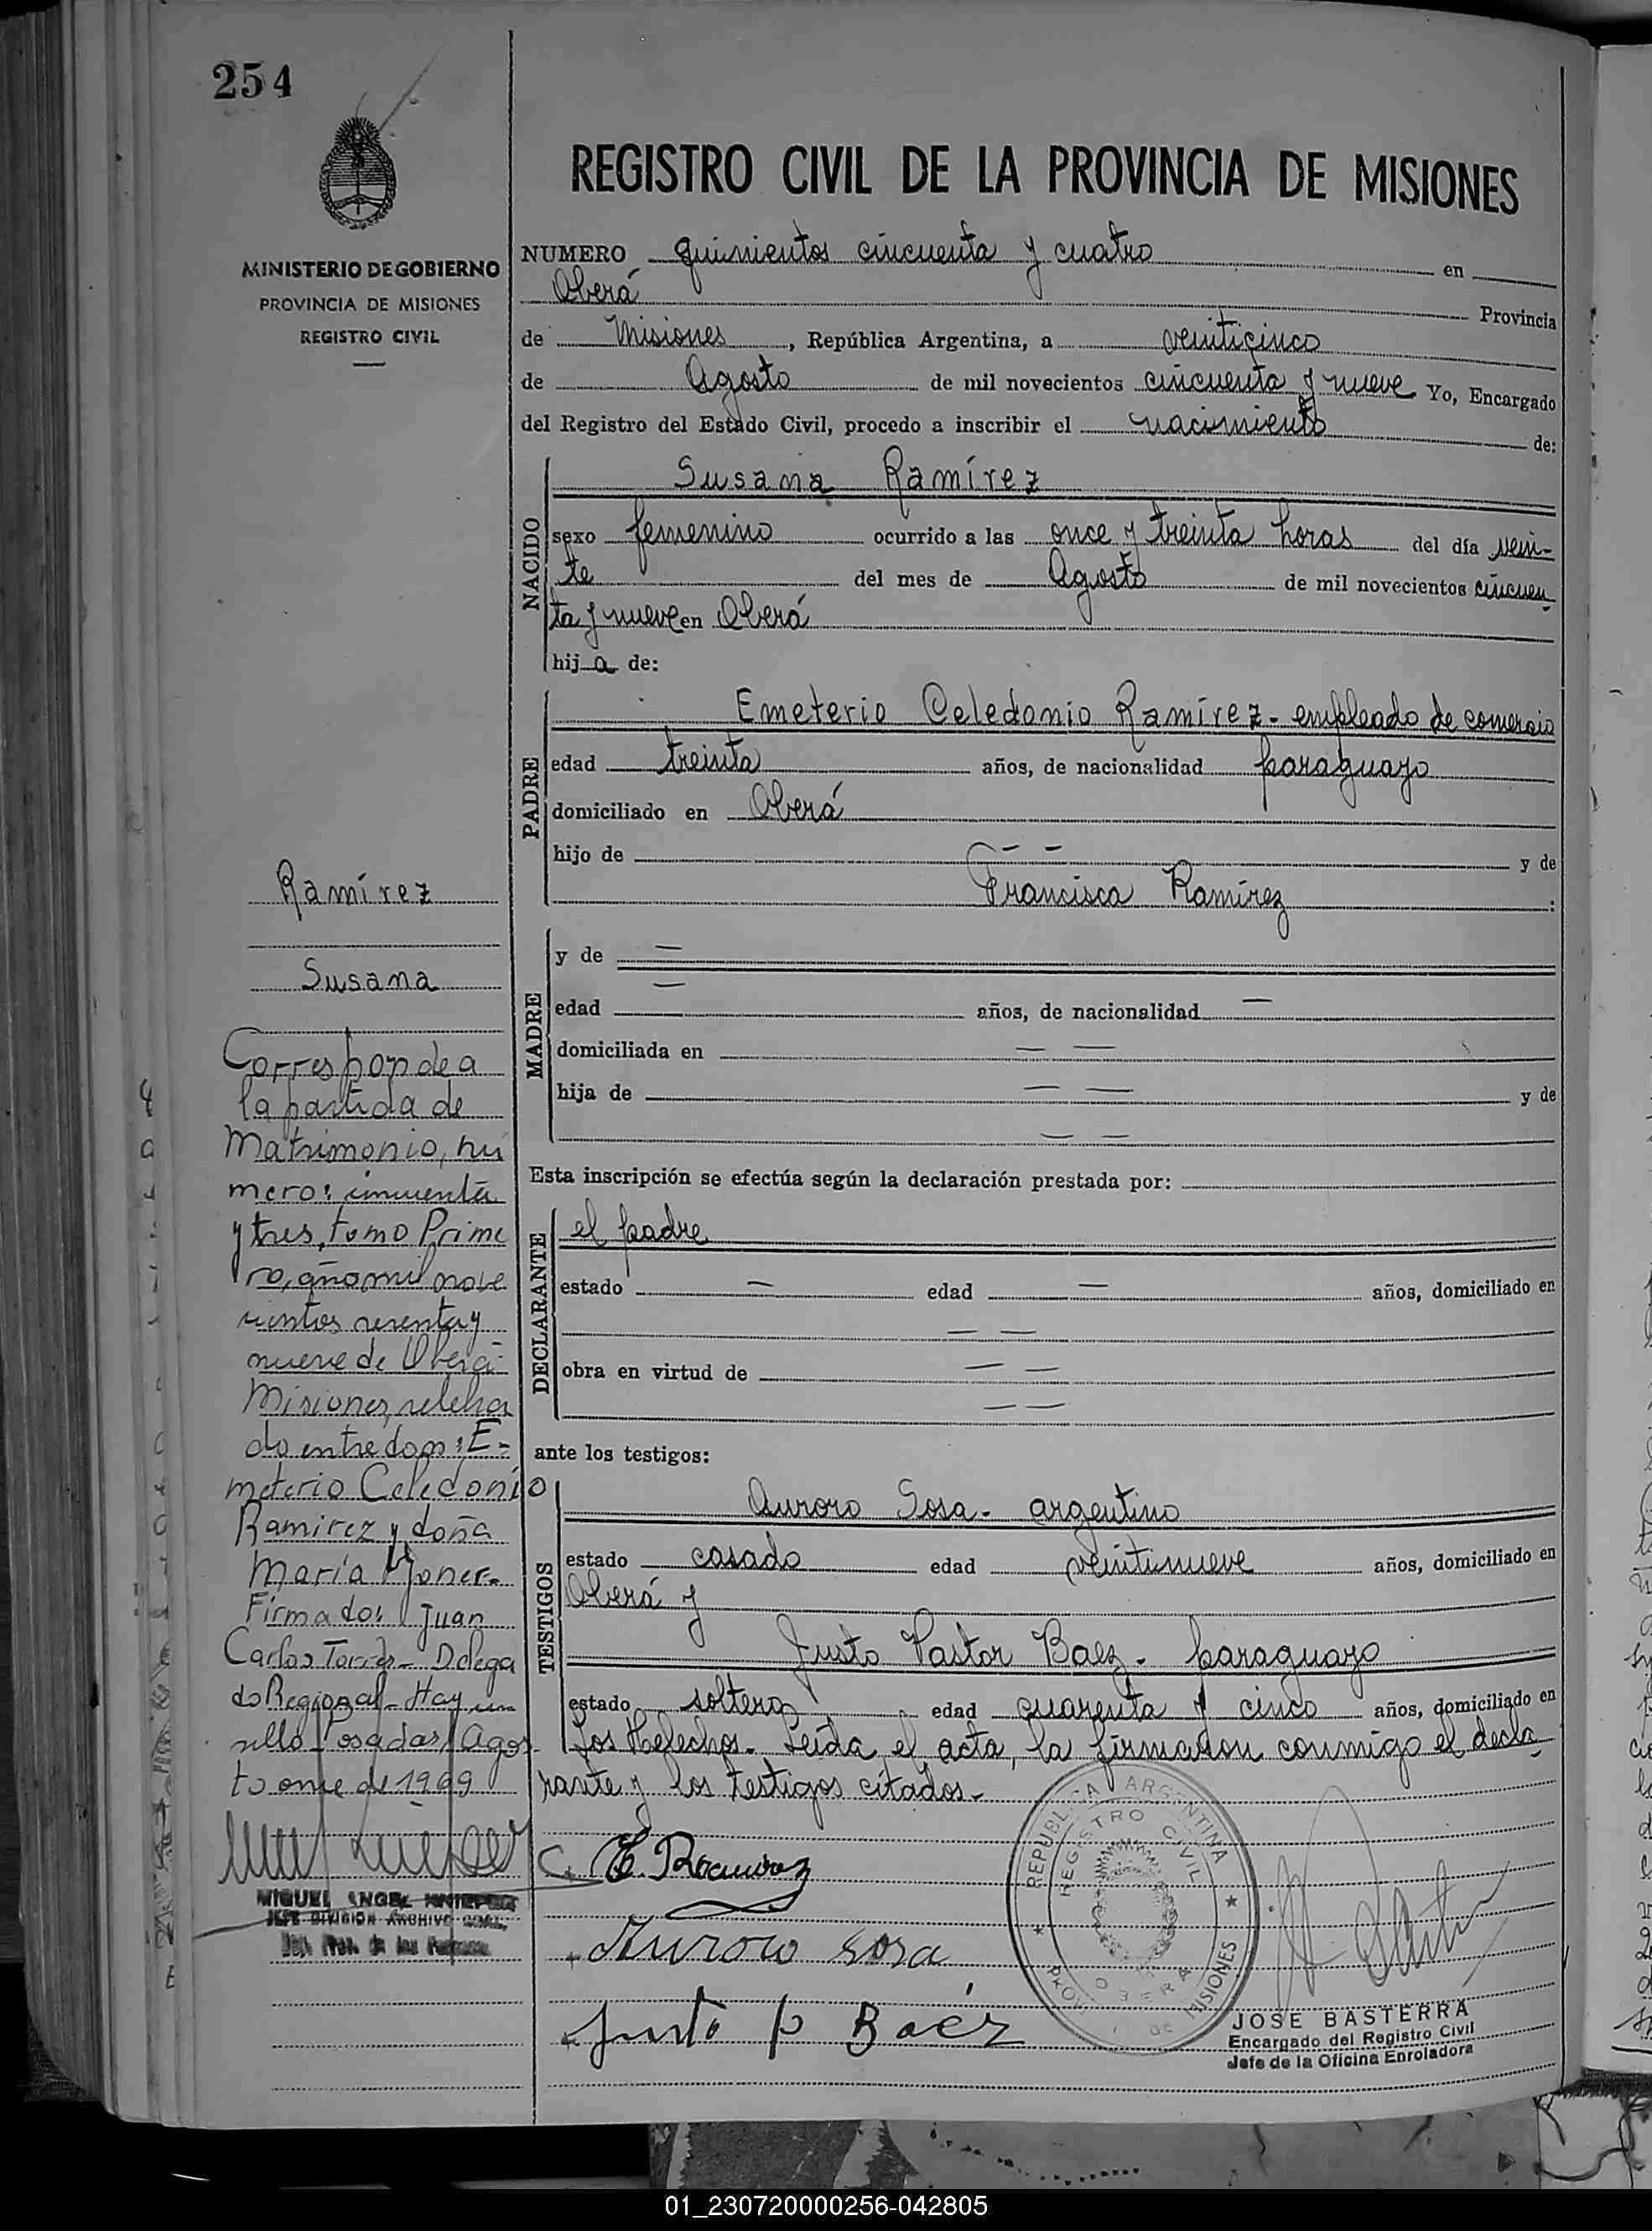 254
MINISTERIO DE GOBIERNO
PROVINCIA DE MISIONES
REGISTRO CIVIL
REGISTRO CIVIL DE LA PROVINCIA DE MISIONES
NUMERO quinientos cincuenta y cuatro en
Oberá Provincia
de Misiones, República Argentina, a veinticinco
de Agosto de mil novecientos cincuenta y nueve Yo, Encargado
del Registro del Estado Civil, procedo a inscribir el nacimiento de:
NACIDO
Susana Ramírez
sexo femenino ocurrido a las once y treinta horas del día vein-
te del mes de Agosto de mil novecientos cincuen
ta y nueve en Oberá
hija de:
PADRE
Emeterio Celedonio Ramírez - empleado de comercio
edad treinta años, de nacionalidad paraguayo
domiciliado en Oberá
hijo de — — y de
Francisca Ramírez :
MADRE
y de —
edad — años, de nacionalidad —
domiciliada en — —
hija de — — y de
— —
Esta inscripción se efectúa según la declaración prestada por:
DECLARANTE
el padre
estado — edad — años, domiciliado en
— —
obra en virtud de — —
— —
ante los testigos:
TESTIGOS
Auroro Sosa - argentino
estado casado edad veintinueve años, domiciliado en
Oberá y
Justo Pastor Baez - paraguayo
estado soltero edad cuarenta y cinco años, domiciliado en
Los Helechos. Leída el acta, la firmaron conmigo el decla
rante y los testigos citados.-
E. Ramirez
Auroro Sosa
Justo P Baéz
REPUBLICA ARGENTINA
REGISTRO CIVIL
OBERA
PROV. DE MISIONES
JOSE BASTERRA
Encargado del Registro Civil
Jefe de la Oficina Enroladora
Ramírez
Susana
Corresponde a
la partida de
Matrimonio, nú
mero: cincuenta
y tres, tomo Prime
ro, año mil nove
cientos sesenta y
nueve de Oberá
Misiones, celebra
do entre don: E-
meterio Celedonio
Ramirez y doña
María
Firmado: Juan
Carlos Torres - Delega
do Regional - Hay un
sello Posadas, Agos
to once de 1969
MIGUEL ANGEL
JEFE DIVISION ARCHIVO GRAL.
01_230720000256-042805